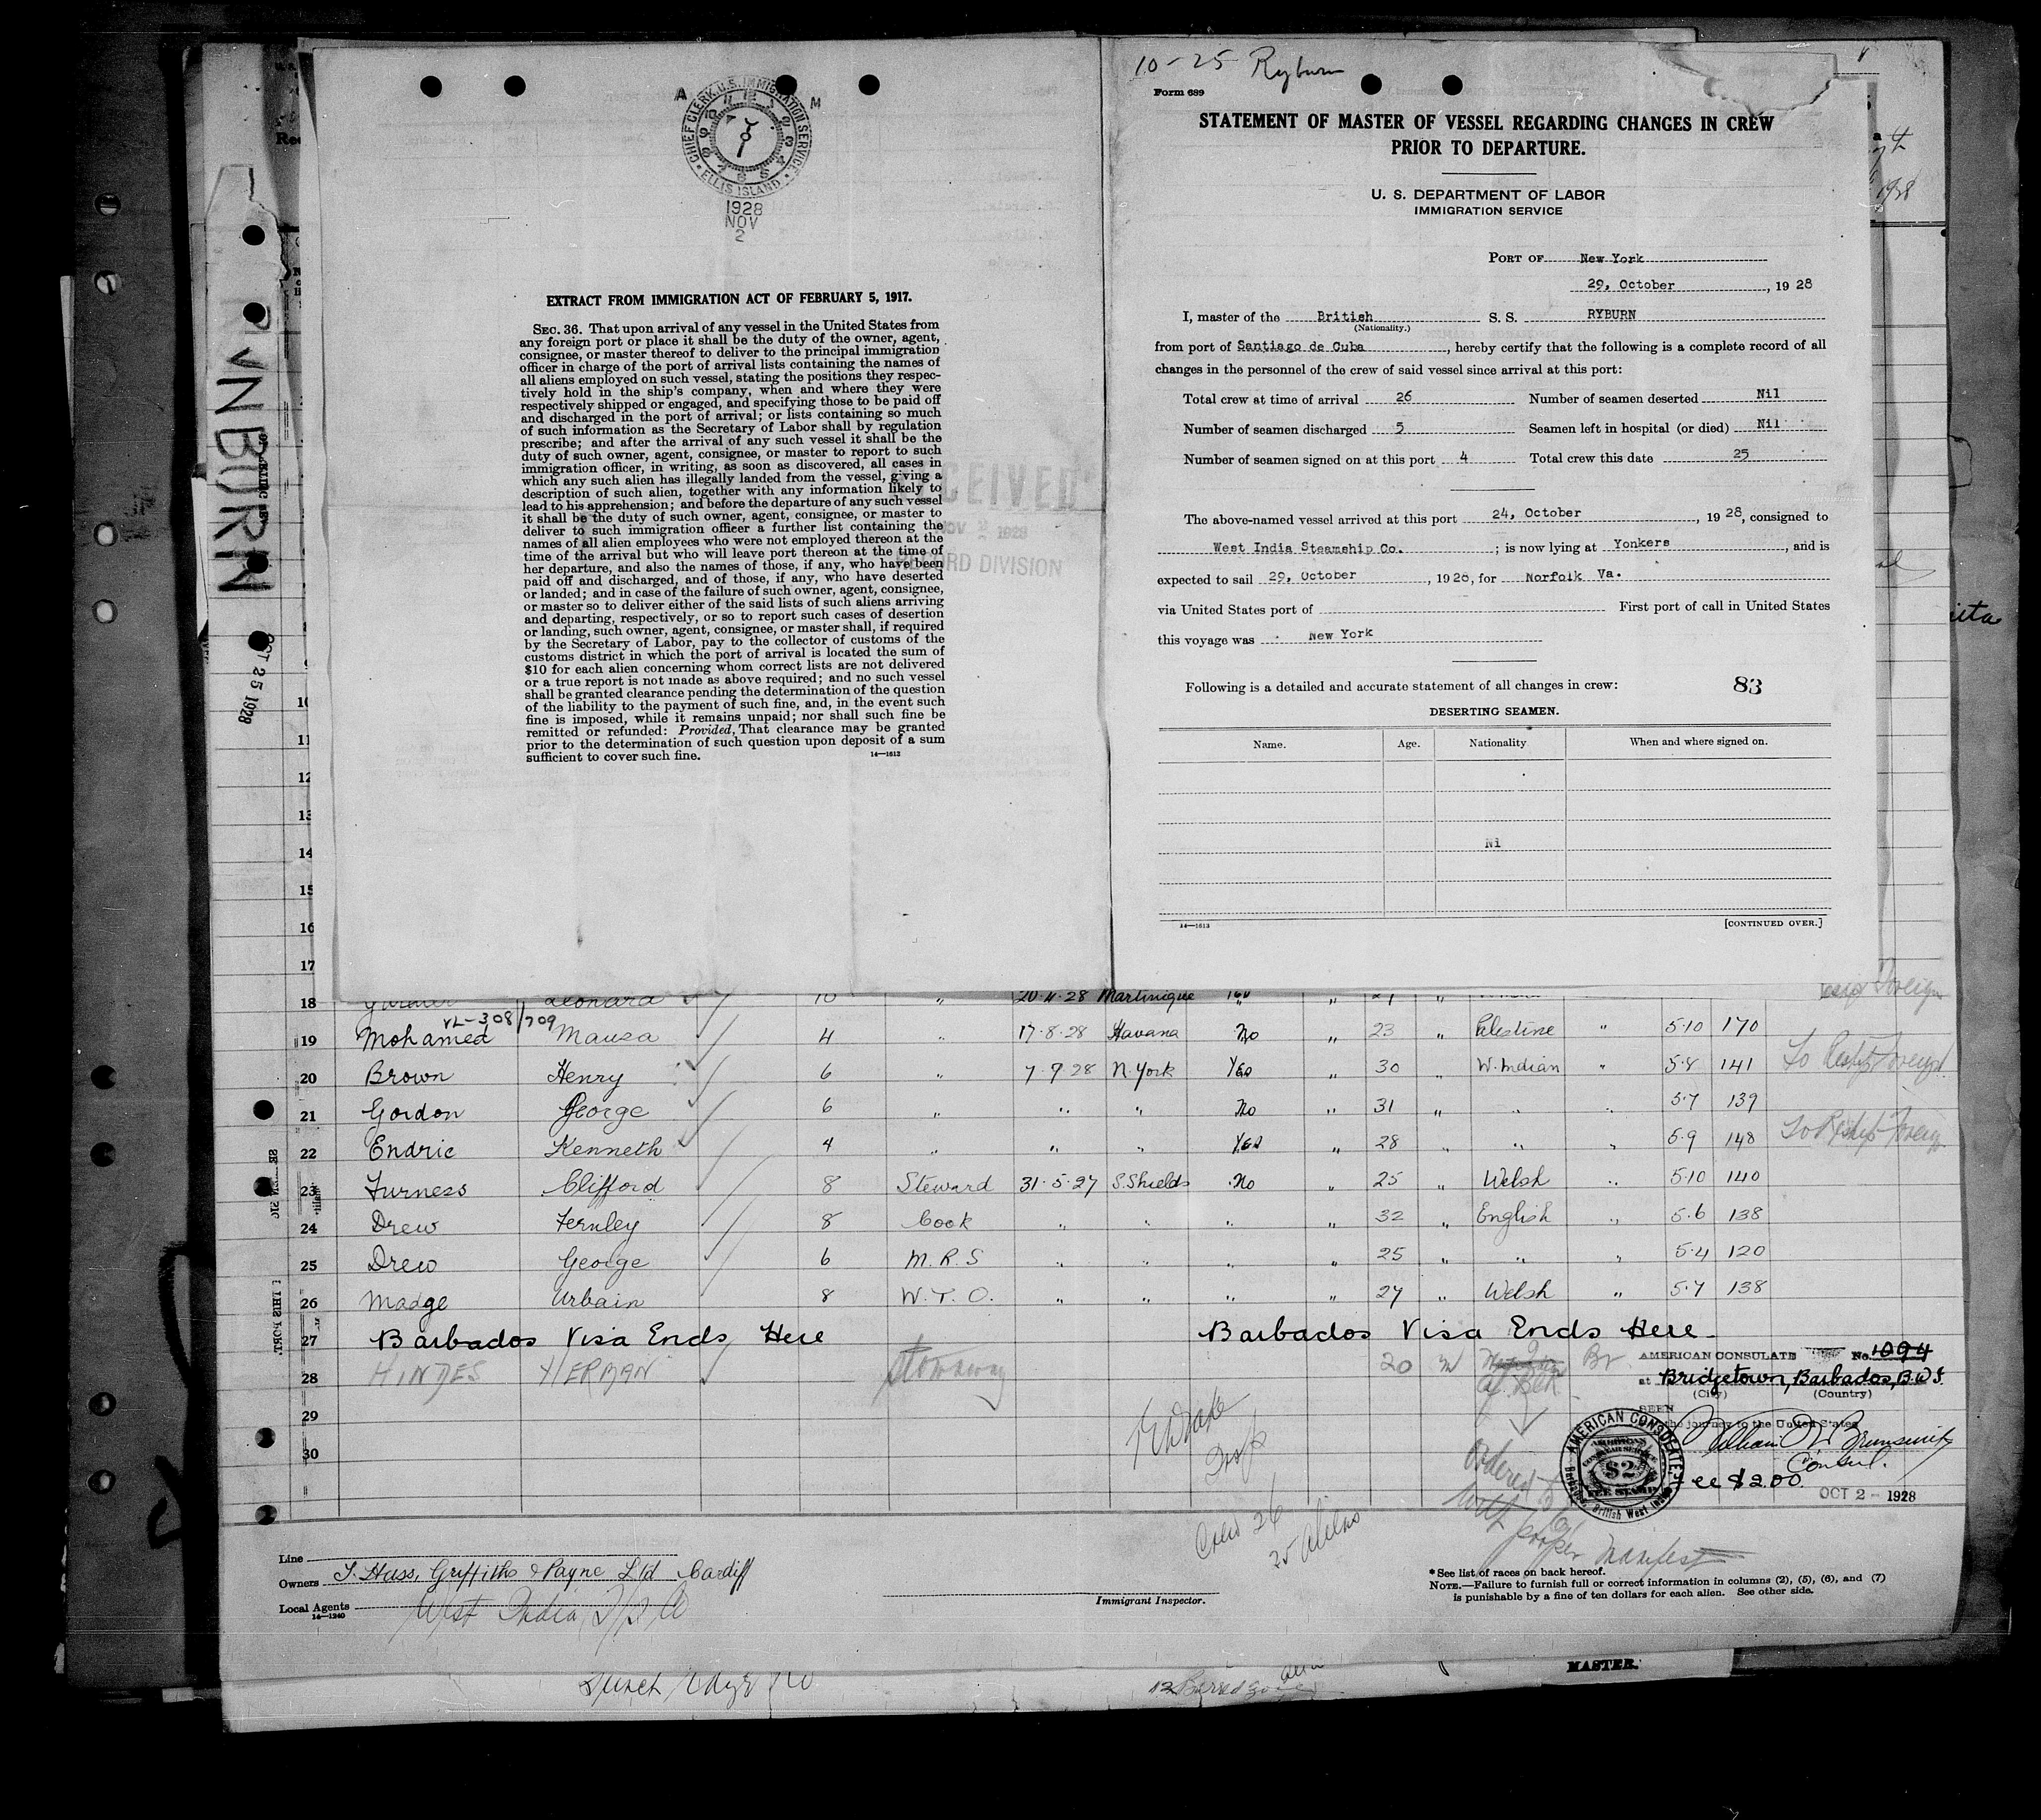 CHIEF CLERK, U.S. IMMIGRATION SERVICE
ELLIS ISLAND
A M
1928
NOV
2
EXTRACT FROM IMMIGRATION ACT OF FEBRUARY 5, 1917.
SEC. 36. That upon arrival of any vessel in the United States from
any foreign port or place it shall be the duty of the owner, agent,
consignee, or master thereof to deliver to the principal immigration
officer in charge of the port of arrival lists containing the names of
all aliens employed on such vessel, stating the positions they respec-
tively hold in the ship's company, when and where they were
respectively shipped or engaged, and specifying those to be paid off
and discharged in the port of arrival; or lists containing so much
of such information as the Secretary of Labor shall by regulation
prescribe; and after the arrival of any such vessel it shall be the
duty of such owner, agent, consignee, or master to report to such
immigration officer, in writing, as soon as discovered, all cases in
which any such alien has illegally landed from the vessel, giving a
description of such alien, together with any information likely to
lead to his apprehension; and before the departure of any such vessel
it shall be the duty of such owner, agent, consignee, or master to
deliver to such immigration officer a further list containing the
names of all alien employees who were not employed thereon at the
time of the arrival but who will leave port thereon at the time of
her departure, and also the names of those, if any, who have been
paid off and discharged, and of those, if any, who have deserted
or landed; and in case of the failure of such owner, agent, consignee,
or master so to deliver either of the said lists of such aliens arriving
and departing, respectively, or so to report such cases of desertion
or landing, such owner, agent, consignee, or master shall, if required
by the Secretary of Labor, pay to the collector of customs of the
customs district in which the port of arrival is located the sum of
$10 for each alien concerning whom correct lists are not delivered
or a true report is not made as above required; and no such vessel
shall be granted clearance pending the determination of the question
of the liability to the payment of such fine, and, in the event such
fine is imposed, while it remains unpaid; nor shall such fine be
remitted or refunded: Provided, That clearance may be granted
prior to the determination of such question upon deposit of a sum
sufficient to cover such fine. 14—1613
NOV 2 1928
RECORD DIVISION
10-25 Ryburn
Form 689
STATEMENT OF MASTER OF VESSEL REGARDING CHANGES IN CREW
PRIOR TO DEPARTURE.
U. S. DEPARTMENT OF LABOR
IMMIGRATION SERVICE
PORT OF New York
29, October, 1928
I, master of the British S. S. RYBURN
(Nationality.)
from port of Santiago de Cuba, hereby certify that the following is a complete record of all
changes in the personnel of the crew of said vessel since arrival at this port:
Total crew at time of arrival 26 Number of seamen deserted Nil
Number of seamen discharged 5 Seamen left in hospital (or died) Nil
Number of seamen signed on at this port 4 Total crew this date 25
The above-named vessel arrived at this port 24, October, 1928, consigned to
West India Steamship Co.; is now lying at Yonkers, and is
expected to sail 29, October, 1928, for Norfolk Va.
via United States port of First port of call in United States
this voyage was New York
Following is a detailed and accurate statement of all changes in crew: 83
DESERTING SEAMEN.
Name. Age. Nationality When and where signed on.
Ni
14—1613 [CONTINUED OVER.]
OCT 25 1928
11
12
13
14
15
16
17
18 Leonard 10 " 20-4-28 Martinique
VL-308/709
19 Mohamed Mausa 4 " 17-8-28 Havana No " 23 " Palestine " 5.10 170
20 Brown Henry 6 " 7-9-28 N. York Yes " 30 " W. Indian " 5.8 141
21 Gordon George 6 " " " No " 31 " " " 5.7 139
22 Endric Kenneth 4 " " " Yes " 28 " " " 5.9 148
23 Furness Clifford 8 Steward 31-5-27 S. Shields No " 25 " Welsh " 5.10 140
24 Drew Fernley 8 Cook " " " " 32 " English " 5.6 138
25 Drew George 6 M.R.S " " " " 25 " " " 5.4 120
26 Madge Urbain 8 W.T.O. " " " " 27 " Welsh " 5.7 138
27 Barbados Visa Ends Here Barbados Visa Ends Here
28 HINDES HERMAN Stowaway 20 m Br
29
30
AMERICAN CONSULATE No. 1094
at Bridgetown, Barbados, B.W.I.
(City) (Country)
SEEN
the journey to the United States
Consul.
AMERICAN CONSULATE
$2
FEE STAMP
British West Indies
Fee $2.00
OCT 2 - 1928
Insp
Crew 26
25 Aliens
Ordered
manifest
Line
Owners Griffiths & Payne Ltd Cardiff
Local Agents West India S/S Co
14—1240
Immigrant Inspector.
* See list of races on back hereof.
NOTE.—Failure to furnish full or correct information in columns (2), (5), (6), and (7)
is punishable by a fine of ten dollars for each alien. See other side.
MASTER.